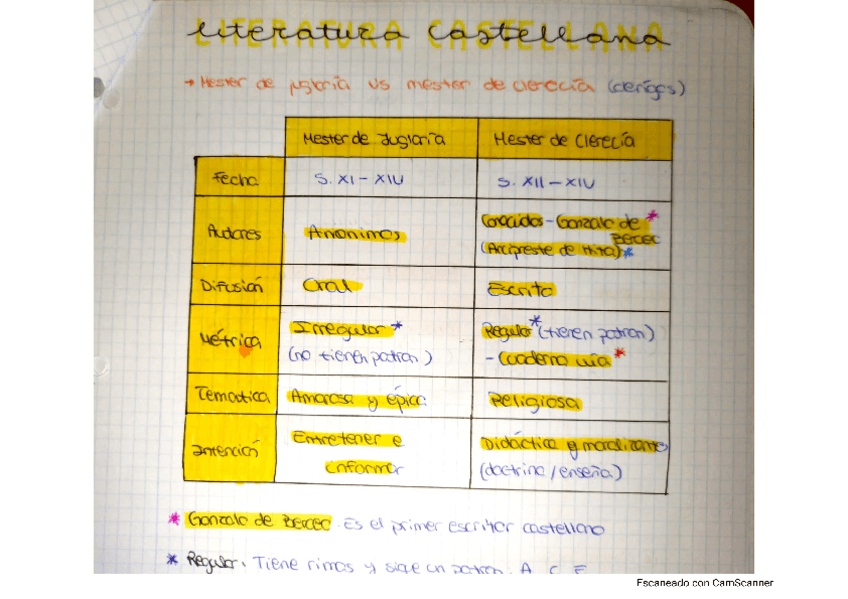 Literatura Castellana
→ Mester de juglaría vs mester de clerecía (clérigos)
Mester de Juglaría Mester de Clerecía
Fecha S. XI - XIV S. XII - XIV
Autores Anónimos Conocidos - Gonzalo de *
Berceo
(Arcipreste de Hita) *
Difusión Oral Escrita
Métrica Irregular * Regular * (tienen patrón)
(no tienen patrón) - Cuaderna vía *
Tematica Amorosa y épica Religiosa
Intención Entretener e Didáctica y moralizante
informar (doctrina / enseña)
* Gonzalo de Berceo. Es el primer escritor castellano
* Regular. Tiene rimas y sigue un patrón.
Escaneado con CamScanner